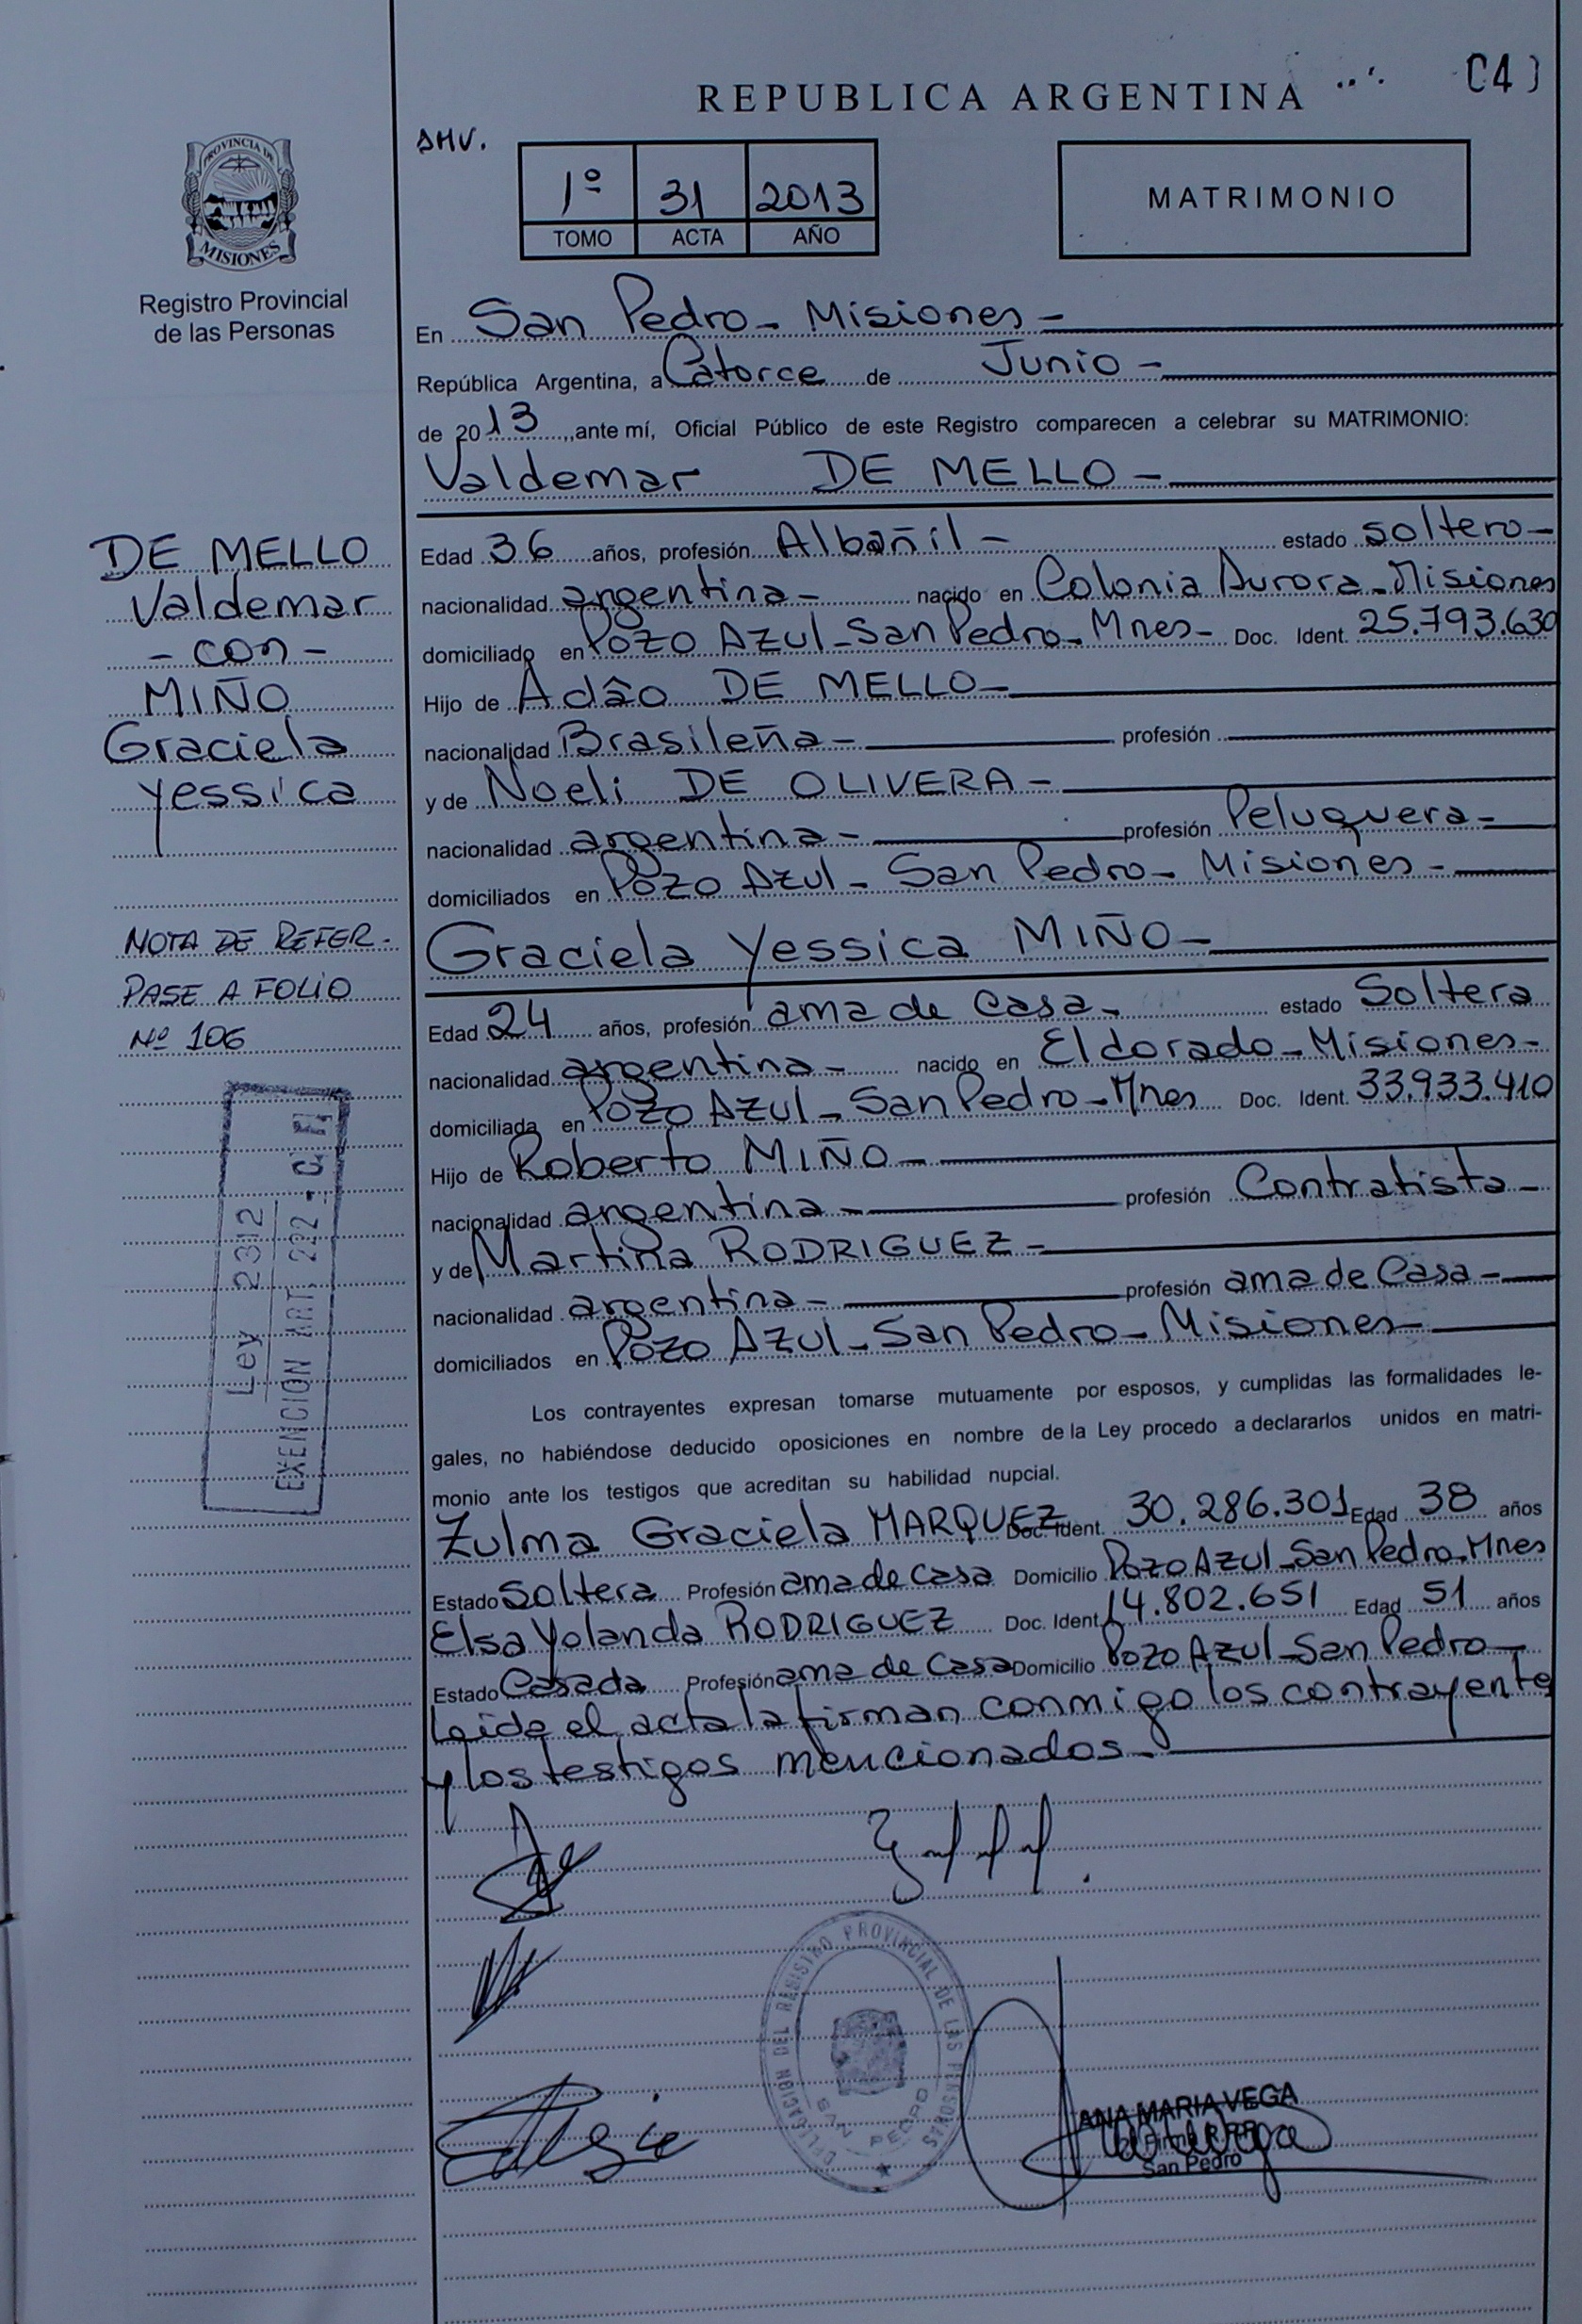 REPUBLICA ARGENTINA
DHV.
PROVINCIA DE
MISIONES
Registro Provincial
de las Personas
1º 31 2013
TOMO ACTA AÑO
MATRIMONIO
En San Pedro - Misiones -
República Argentina, a Catorce de Junio -
de 2013, ante mí, Oficial Público de este Registro comparecen a celebrar su MATRIMONIO:
Valdemar DE MELLO -
DE MELLO
Valdemar
- con -
MIÑO
Graciela
Yessica
Edad 36 años, profesión Albañil - estado soltero -
nacionalidad argentina - nacido en Colonia Aurora - Misiones
domiciliado en Pozo Azul - San Pedro - Mnes - Doc. Ident. 25.793.630
Hijo de Adâo DE MELLO -
nacionalidad Brasileña - profesión
y de Noeli DE OLIVERA -
nacionalidad argentina - profesión Peluquera -
domiciliados en Pozo Azul - San Pedro - Misiones -
Graciela Yessica MIÑO -
NOTA DE REFER.
PASE A FOLIO
Nº 106
Edad 24 años, profesión ama de casa - estado Soltera
nacionalidad argentina - nacido en Eldorado - Misiones -
domiciliada en Pozo Azul - San Pedro - Mnes Doc. Ident. 33.933.410
Hijo de Roberto MIÑO -
nacionalidad argentina - profesión Contratista -
y de Martina RODRIGUEZ -
nacionalidad argentina - profesión ama de Casa -
domiciliados en Pozo Azul - San Pedro - Misiones -
Ley 2312
EXENCION ART. 222 -
Los contrayentes expresan tomarse mutuamente por esposos, y cumplidas las formalidades le-
gales, no habiéndose deducido oposiciones en nombre de la Ley procedo a declararlos unidos en matri-
monio ante los testigos que acreditan su habilidad nupcial.
Zulma Graciela MARQUEZ Doc. Ident. 30.286.301 Edad 38 años
Estado Soltera Profesión ama de casa Domicilio Pozo Azul - San Pedro - Mnes
Elsa Yolanda RODRIGUEZ Doc. Ident. 14.802.651 Edad 51 años
Estado Casada Profesión ama de Casa Domicilio Pozo Azul - San Pedro -
Leida el acta la firman conmigo los contrayente
y los testigos mencionados -
DELEGACION DEL REGISTRO PROVINCIAL DE LAS PERSONAS
SAN PEDRO
ANA MARIA VEGA
Firma R.PP
San Pedro